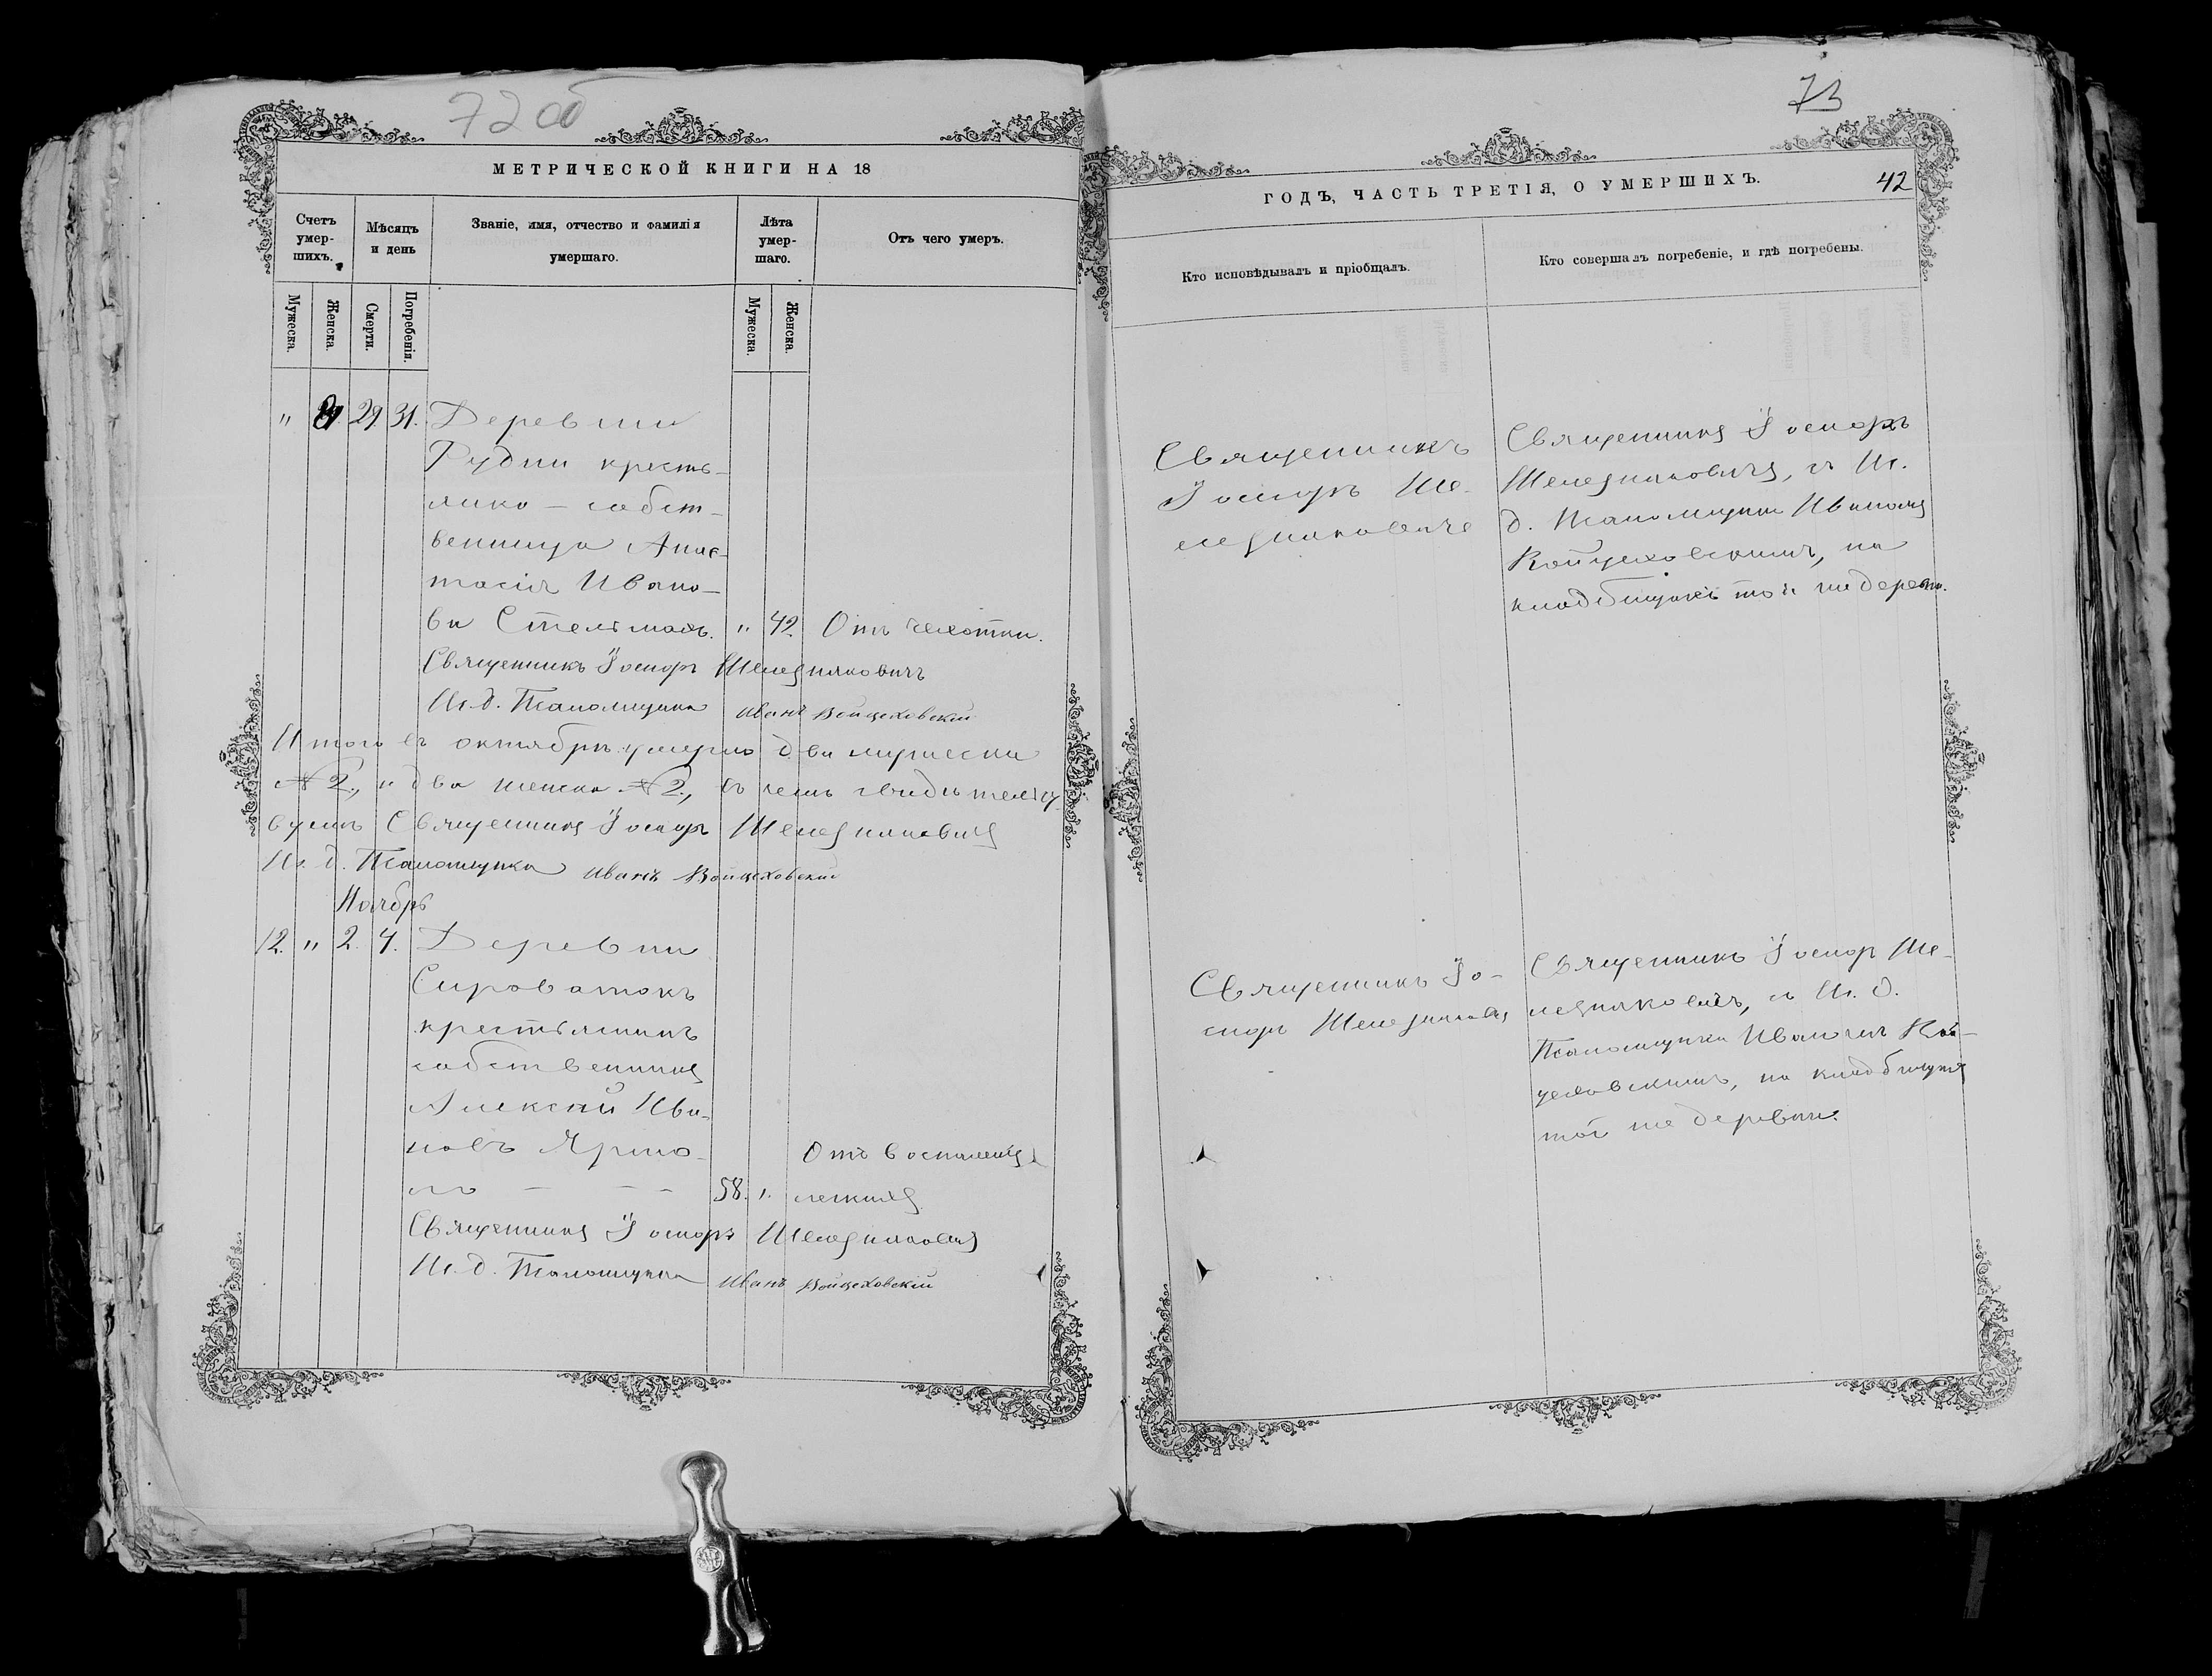 72 об
МЕТРИЧЕСКОЙ КНИГИ НА 18
Счетъ умер-шихъ.
Мѣсяцъ и день
Званіе, имя, отчество и фамилія умершаго.
Лѣта умер-шаго.
Отъ чего умеръ.
Мужеска.
Женска.
Смерти.
Погребенія.
Мужеска.
Женска.
" 29 31. Деревни
Рудни кресть-
янка – собст-
венница Анас-
тасія Ивано-
ва Стельмахъ. " 42. Отъ чахотки.
Священникъ Іосифъ
И. д. Псаломщика Иванъ Войцеховскій
Итого въ октябрѣ умерло два мужеска
№ 2., и два женска № 2., въ чемъ свидѣтельст
вуемъ Священникъ Іосифъ
И. д. Псаломщика Иванъ Войцеховскій
Ноябрь
12. " 2. 4. Деревни
Сыроватокъ
крестьянинъ
собственникъ
Алексѣй Ива-
новъ Ярмо-
ла – – – 58. " Отъ воспаленія
легкихъ.
Священникъ Іосифъ
И. д. Псаломщика Иванъ Войцеховскій
73
ГОДЪ, ЧАСТЬ ТРЕТІЯ, О УМЕРШИХЪ.
42
Кто исповѣдывалъ и пріобщалъ.
Кто совершалъ погребеніе, и гдѣ погребены.
Священникъ
Іосифъ
Священникъ Іосифъ
съ И.
д. Псаломщика Иваномъ
Войцеховскимъ, на
кладбищѣ той же деревни.
Священникъ Іо-
сифъ
Священникъ Іосифъ
съ И. д.
Псаломщика Иваномъ Вой-
цеховскимъ, на кладбищѣ
той же деревни.